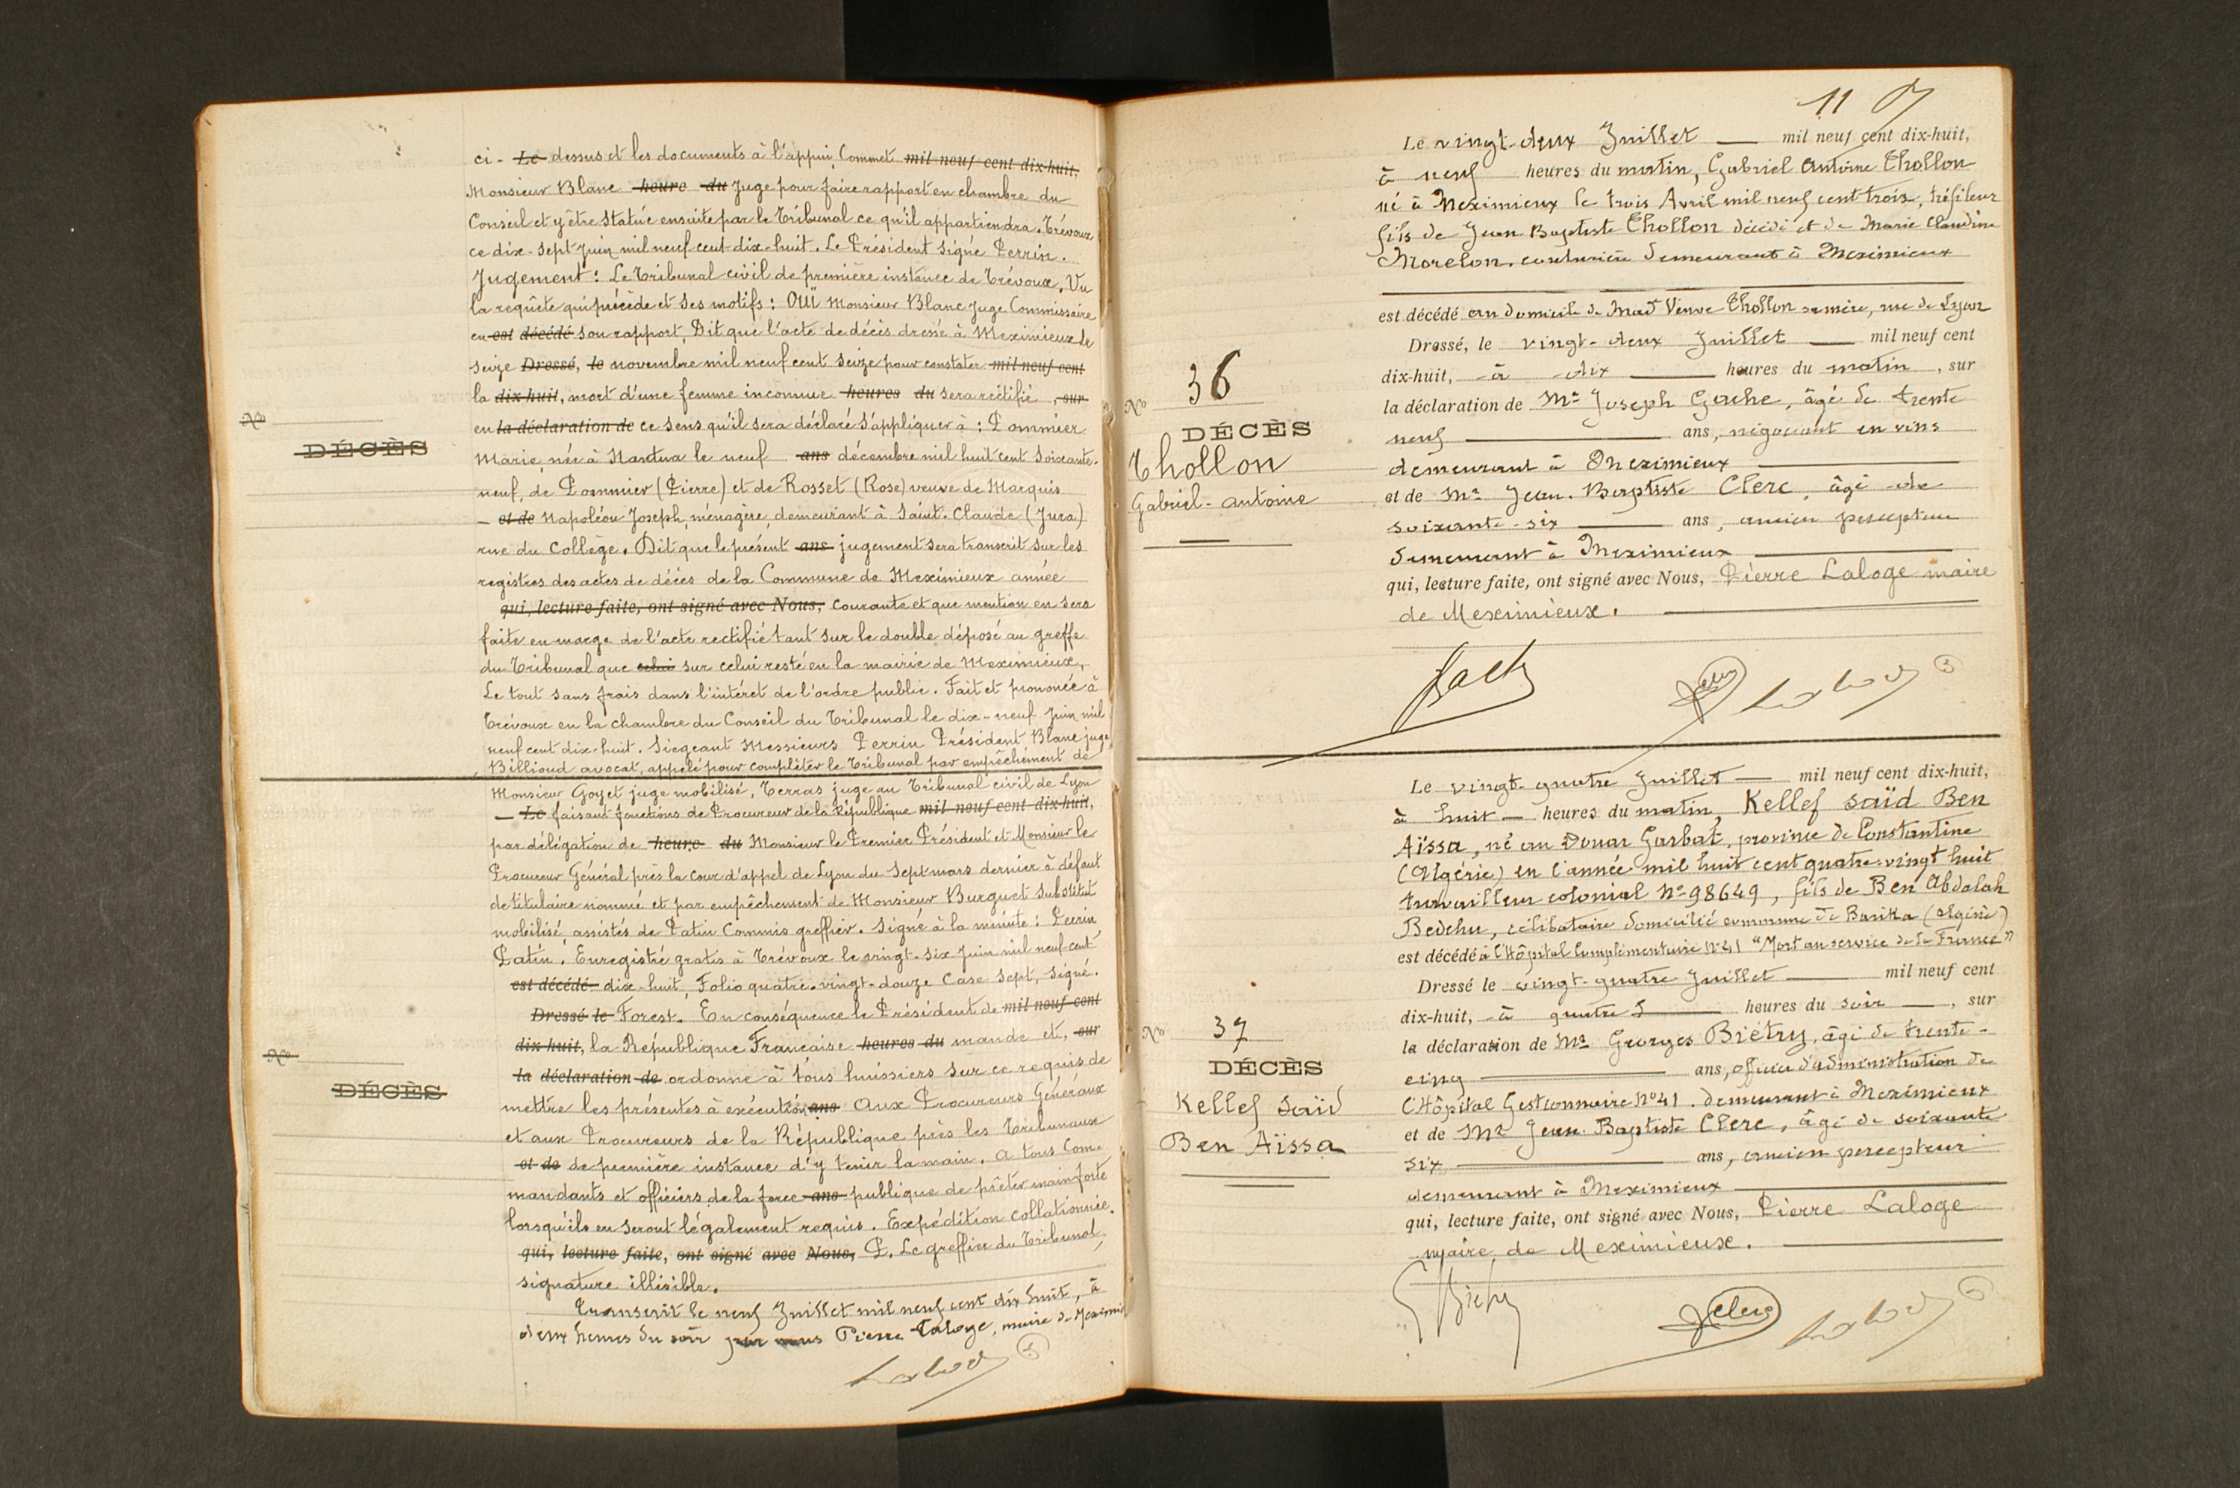 ci - Le dessus et les documents à l'appui, Commet mil neuf cent dix-huit,
Monsieur Blanc heure du Juge pour faire rapport en chambre du
Conseil et y être statué ensuite par le Tribunal ce qu'il appartiendra. Trévoux
ce dix-sept Juin mil neuf cent dix-huit. Le Président signé Perrin.
Jugement : Le Tribunal civil de première instance de Trévoux. Vu
la requête qui précède et ses motifs : Ouï Monsieur Blanc Juge Commissaire
en est décédé son rapport, Dit que l'acte de décès dressé à Meximieux le
seize Dressé, le novembre mil neuf cent seize pour constater mil neuf cent
la dix-huit, mort d'une femme inconnue heures du sera rectifié , sur
en la déclaration de ce sens qu'il sera déclaré s'appliquer à : Pommier
N°
DÉCÈS
Marie, née à Nantua le neuf ans décembre mil huit cent soixante-
neuf, de Pommier (Pierre) et de Rosset (Rose) veuve de Marquis
- et de Napoléon Joseph, ménagère, demeurant à Saint-Claude (Jura)
rue du Collège. Dit que le présent ans jugement sera transcrit sur les
registres des actes de décès de la Commune de Meximieux année
qui, lecture faite, ont signé avec Nous, courante et que mention en sera
faite en marge de l'acte rectifié tant sur le double déposé au greffe
du Tribunal que celui sur celui resté en la mairie de Meximieux,
Le tout sans frais dans l'intéret de l'ordre public. Fait et prononcé à
Trévoux en la chambre du Conseil du Tribunal le dix-neuf Juin mil
neuf cent dix-huit. Siegeant Messieurs Perrin Président Blanc juge
Billioud avocat, appelé pour compléter le Tribunal par empêchement de
Monsieur Goyet juge mobilisé, Terras juge au Tribunal civil de Lyon
- Le faisant fonctions de Procureur de la République mil neuf cent dix-huit,
par délégation de heure du Monsieur le Premier Président et Monsieur le
Procureur Général près la cour d'appel de Lyon du sept mars dernier à défaut
de titulaire nommé et par empêchement de Monsieur Burguet Substitut
mobilisé, assistés de Patin Commis greffier. Signé à la minute : Perrin
Patin. Enregistré gratis à Trévoux le vingt-six Juin mil neuf cent
est décédé dix-huit, Folio quatre-vingt-douze Case sept, signé.
Dressé le Forest. En conséquence le Président de mil neuf cent
dix-huit, la République Française heures du mande et, sur
N°
DÉCÈS
la déclaration de ordonne à tous huissiers sur ce requis de
mettre les présentes à exécution ans Aux Procureurs Généraux
et aux Procureurs de la République près les Tribunaux
et de de première instance d'y tenir la main. A tous Com-
mandants et officiers de la force ans publique de prêter main forte
lorsqu'ils en seront légalement requis. Expédition collationnée.
qui, lecture faite, ont signé avec Nous, P. Le greffier du Tribunal,
signature illisible.
Transcrit le neuf Juillet mil neuf cent dix huit, à
deux heures du soir par nous Pierre Laloge, maire de Meximieux
11
Le vingt-deux Juillet mil neuf cent dix-huit,
à neuf heures du matin, Gabriel Antoine Thollon
né à Meximieux le trois Avril mil neuf cent trois, tréfileur
fils de Jean Baptiste Thollon décédé et de Marie Claudine
Morelon, couturière demeurant à Meximieux
est décédé au domicile de Mad Veuve Thollon sa mère, rue de Lyon
Dressé, le vingt-deux Juillet mil neuf cent
dix-huit, à dix heures du matin , sur
N° 36
DÉCÈS
Thollon
Gabriel-Antoine
la déclaration de Mr Joseph Gache, âgé de trente
neuf ans, négociant en vins
demeurant à Meximieux
et de Mr Jean-Baptiste Clerc, âgé de
soixante-six ans, ancien percepteur
demeurant à Meximieux
qui, lecture faite, ont signé avec Nous, Pierre Laloge maire
de Meximieux.
Le vingt-quatre Juillet mil neuf cent dix-huit,
à huit heures du matin, Kellef Saïd Ben
Aïssa, né au Douar Gasbat, province de Constantine
(Algérie) en l'année mil huit cent quatre-vingt huit
travailleur colonial N° 98649, fils de Ben Abdalah
Bedchu, célibataire domicilié commune de Barika (Algérie)
est décédé à l'Hôpital Complémentaire N° 41 "Mort au service de la France"
Dressé le vingt-quatre Juillet mil neuf cent
dix-huit, à quatre heures du soir , sur
N° 37
DÉCÈS
Kellef Saïd
Ben Aïssa
la déclaration de Mr Georges Biétry, âgé de trente-
cinq ans, officier d'administration de
l'Hôpital Gestionnaire N° 41. demeurant à Meximieux
et de Mr Jean-Baptiste Clerc, âgé de soixante
six ans, ancien percepteur
demeurant à Meximieux
qui, lecture faite, ont signé avec Nous, Pierre Laloge
maire de Meximieux.
Clerc